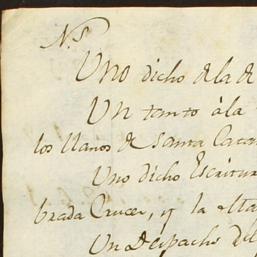 N.S
Uno dicho dela de
Un tanto àla
los llanos de Santa Cata
Uno dicho Escritur
brada Cruces, y la otta
Un Despacho del